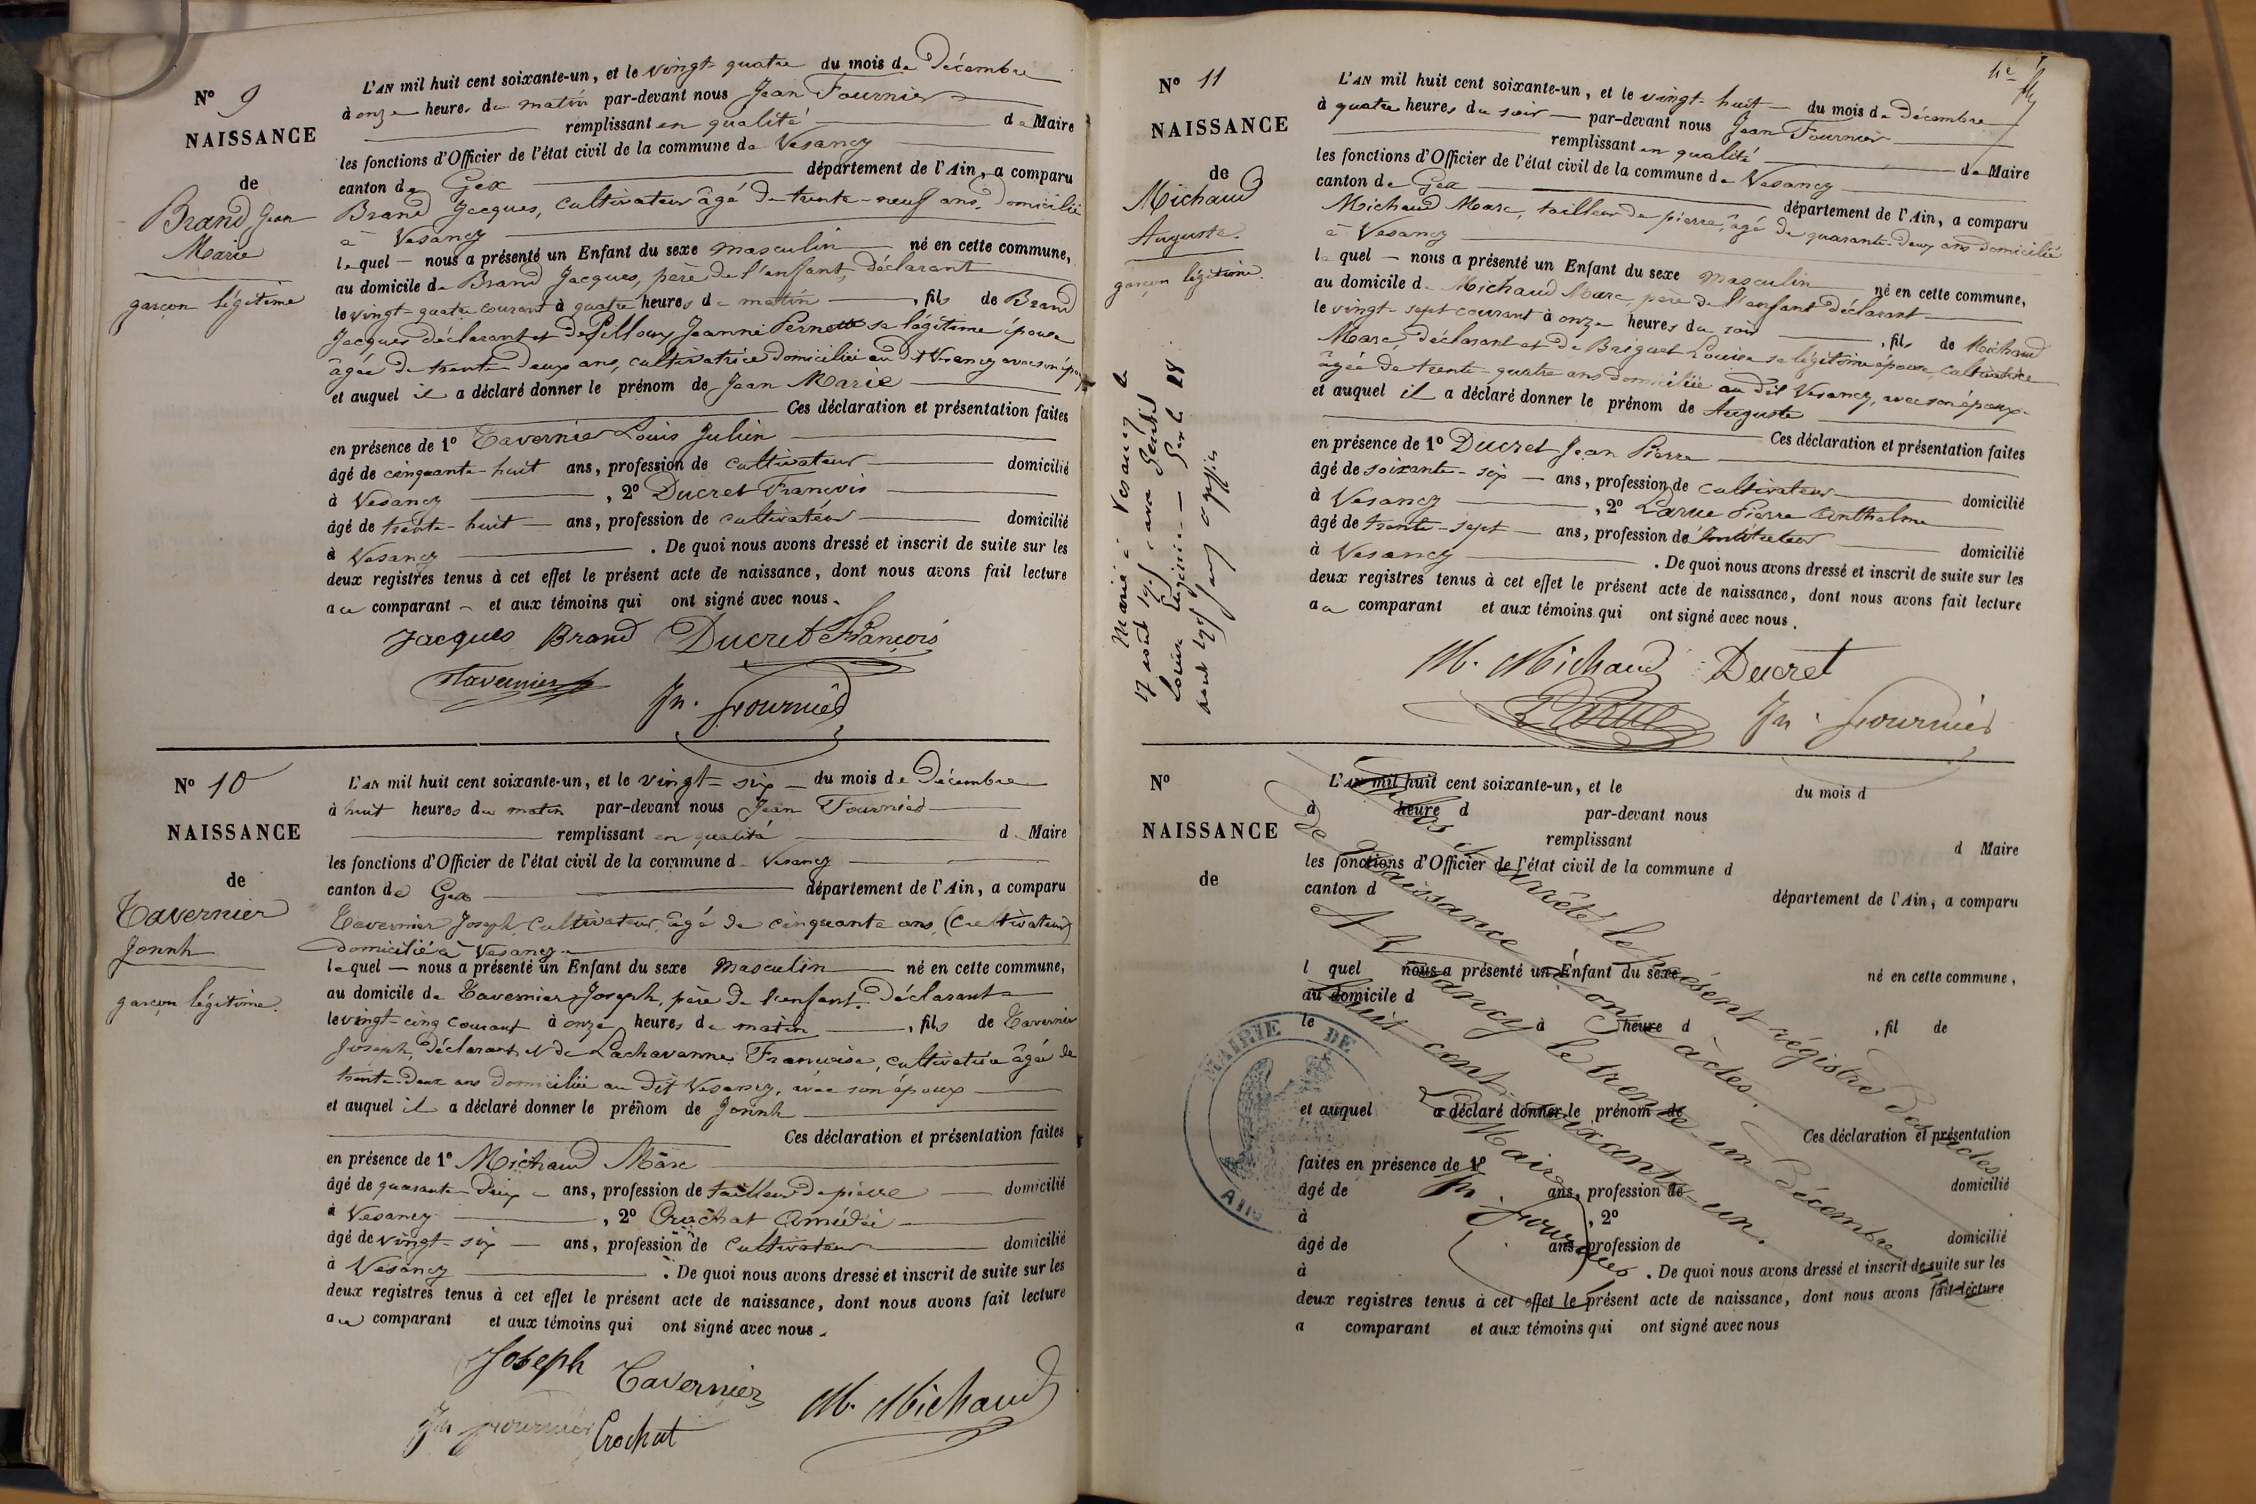 N° 9
NAISSANCE
de
Brand Jean
Marie
garçon légitime
L'AN mil huit cent soixante-un, et le vingt-quatre du mois de Décembre
à onze heures du matin par-devant nous Jean Fournier
remplissant en qualité de Maire
les fonctions d'Officier de l'état civil de la commune de Vesancy
canton de Gex département de l'Ain, a comparu
Brand Jacques, cultivateur âgé de trente-neuf ans, domicilié
à Vesancy
lequel nous a présenté un Enfant du sexe masculin né en cette commune,
au domicile de Brand Jacques, père de l'enfant, déclarant
le vingt-quatre courant à quatre heures de matin, fils de Brand
Jacques déclarant et de Pilloux Jeanne Pernette sa légitime épouse
âgée de trente-deux ans, cultivatrice domiciliée au dit Vesancy avec son époux
et auquel il a déclaré donner le prénom de Jean Marie
Ces déclaration et présentation faites
en présence de 1° Tavernier Louis Julien
âgé de cinquante-huit ans, profession de cultivateur domicilié
à Vesancy, 2° Ducret François
âgé de trente-huit ans, profession de cultivateur domicilié
à Vesancy. De quoi nous avons dressé et inscrit de suite sur les
deux registres tenus à cet effet le présent acte de naissance, dont nous avons fait lecture
au comparant et aux témoins qui ont signé avec nous.
Jacques Brand Ducret François
Tavernier
Jn. Fournier
N° 10
NAISSANCE
de
Tavernier
Jonnh
garçon légitime.
L'AN mil huit cent soixante-un, et le vingt-six du mois de Décembre
à huit heures du matin par-devant nous Jean Fournier
remplissant en qualité d Maire
les fonctions d'Officier de l'état civil de la commune d Vesancy
canton de Gex département de l'Ain, a comparu
Tavernier Joseph, cultivateur, âgé de cinquante ans, (cultivateur)
domicilié à Vesancy
lequel nous a présenté un Enfant du sexe masculin né en cette commune,
au domicile de Tavernier Joseph, père de l'enfant déclarant
le vingt-cinq courant à onze heures de matin, fils de Tavernier
Joseph, déclarant et de Lachavanne Françoise, cultivatrice âgée de
trente-deux ans domiciliée au dit Vesancy, avec son époux
et auquel il a déclaré donner le prénom de Jonnh
Ces déclaration et présentation faites
en présence de 1° Michaud Marc
âgé de quarante-deux ans, profession de tailleur de pierre domicilié
à Vesancy, 2° Crochat Amédée
âgé de vingt-six ans, profession de cultivateur domicilié
à Vesancy. De quoi nous avons dressé et inscrit de suite sur les
deux registres tenus à cet effet le présent acte de naissance, dont nous avons fait lecture
au comparant et aux témoins qui ont signé avec nous.
Joseph Tavernier M. Michaud
Jn Fournier Crochat
N° 11
NAISSANCE
de
Michaud
Auguste.
garçon légitime.
Marié à Vesancy le
17 avec
Louise
L'AN mil huit cent soixante-un, et le vingt-huit du mois de Décembre
à quatre heures du soir par-devant nous Jean Fournier
remplissant en qualité de Maire
les fonctions d'Officier de l'état civil de la commune de Vesancy
canton de Gex département de l'Ain, a comparu
Michaud Marc, tailleur de pierre, âgé de quarante-deux ans domicilié
à Vesancy
lequel nous a présenté un Enfant du sexe masculin né en cette commune,
au domicile de Michaud Marc, père de l'enfant déclarant
le vingt-sept courant à onze heures du soir, fils de Michaud
Marc, déclarant et de Briquet Louise sa légitime épouse, cultivatrice
âgée de trente-quatre ans domiciliée au dit Vesancy, avec son époux
et auquel il a déclaré donner le prénom de Auguste
Ces déclaration et présentation faites
en présence de 1° Ducret Jean Pierre
âgé de soixante-six ans, profession de cultivateur domicilié
à Vesancy, 2° Larue Pierre Anthelme
âgé de trente-sept ans, profession de Instituteur domicilié
à Vesancy. De quoi nous avons dressé et inscrit de suite sur les
deux registres tenus à cet effet le présent acte de naissance, dont nous avons fait lecture
au comparant et aux témoins qui ont signé avec nous.
M. Michaud Ducret
Larue Jn. Fournier
N°
NAISSANCE
de
L'AN mil huit cent soixante-un, et le du mois d
à heure d par-devant nous
remplissant d Maire
les fonctions d'Officier de l'état civil de la commune d
canton d département de l'Ain, a comparu
l quel nous a présenté un Enfant du sexe né en cette commune,
au domicile d
le à heure d, fil de
et auquel a déclaré donner le prénom de
Ces déclaration et présentation
faites en présence de 1°
âgé de ans, profession de domicilié
à , 2°
âgé de ans, profession de domicilié
à . De quoi nous avons dressé et inscrit de suite sur les
deux registres tenus à cet effet le présent acte de naissance, dont nous avons fait lecture
a comparant et aux témoins qui ont signé avec nous
arrêté le présent régistre des actes
de naissance onze actes.
A Vesancy le trente-un Décembre mil
huit cent soixante-un.
Le Maire
Jn. Fournier
MAIRIE DE
AIN